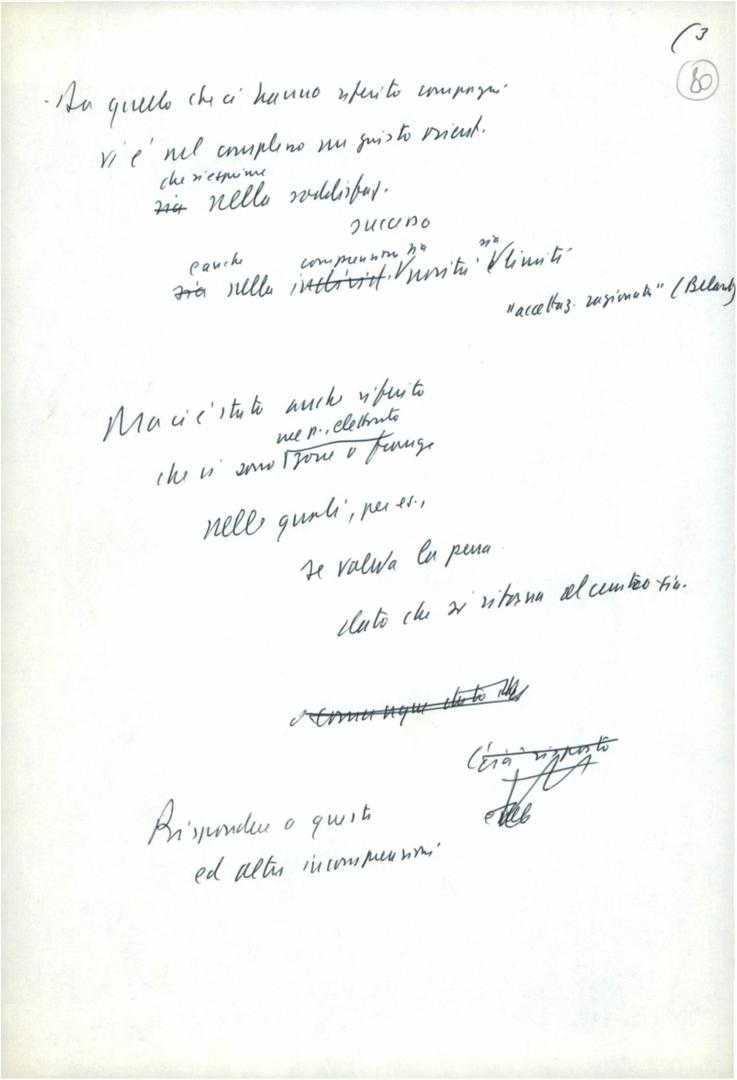 (3
80
- Da quello che ci hanno riferito compagni
vi è nel complesso un giusto orient.
che si esprime
sia nella soddisfaz.
successo
e anche comprensione sia sia
sia nella novità limiti
"accettaz. ragionata" (
Ma ci è stato anche riferito
ne p. elettorato
che vi sono zone o frange
nelle quali, per es.,
se valeva la pena
dato che si ritorna al centro-sin.
o comunque dato
C'è già risposto
Rispondere a questi
ed altre incomprensioni